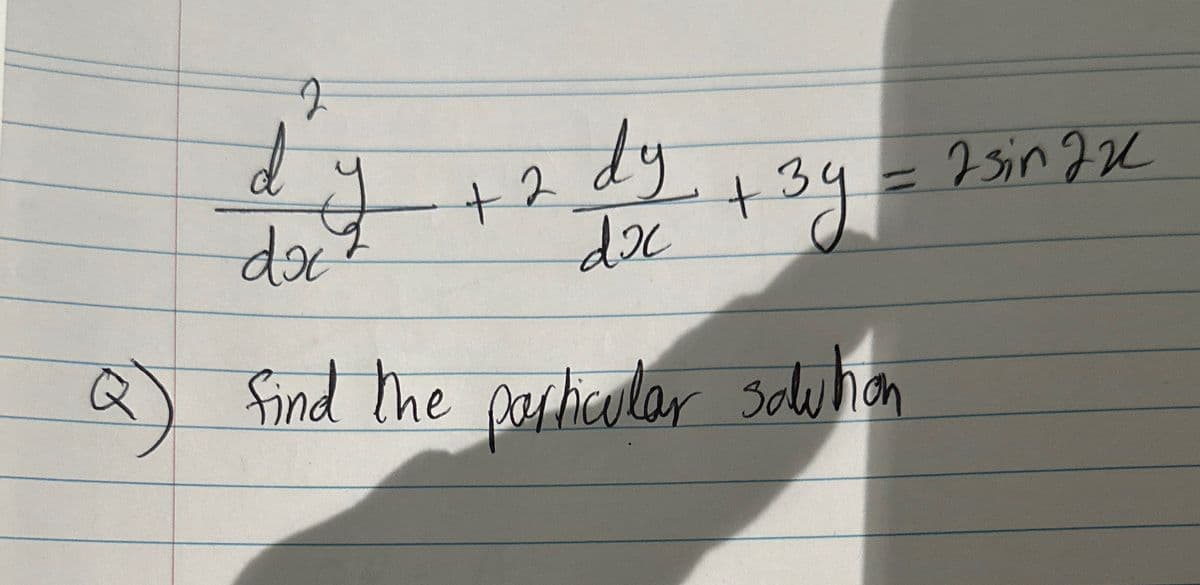 d²y/dx² + 2 dy/dx + 3y = 2sin2x
Q) find the particular solution